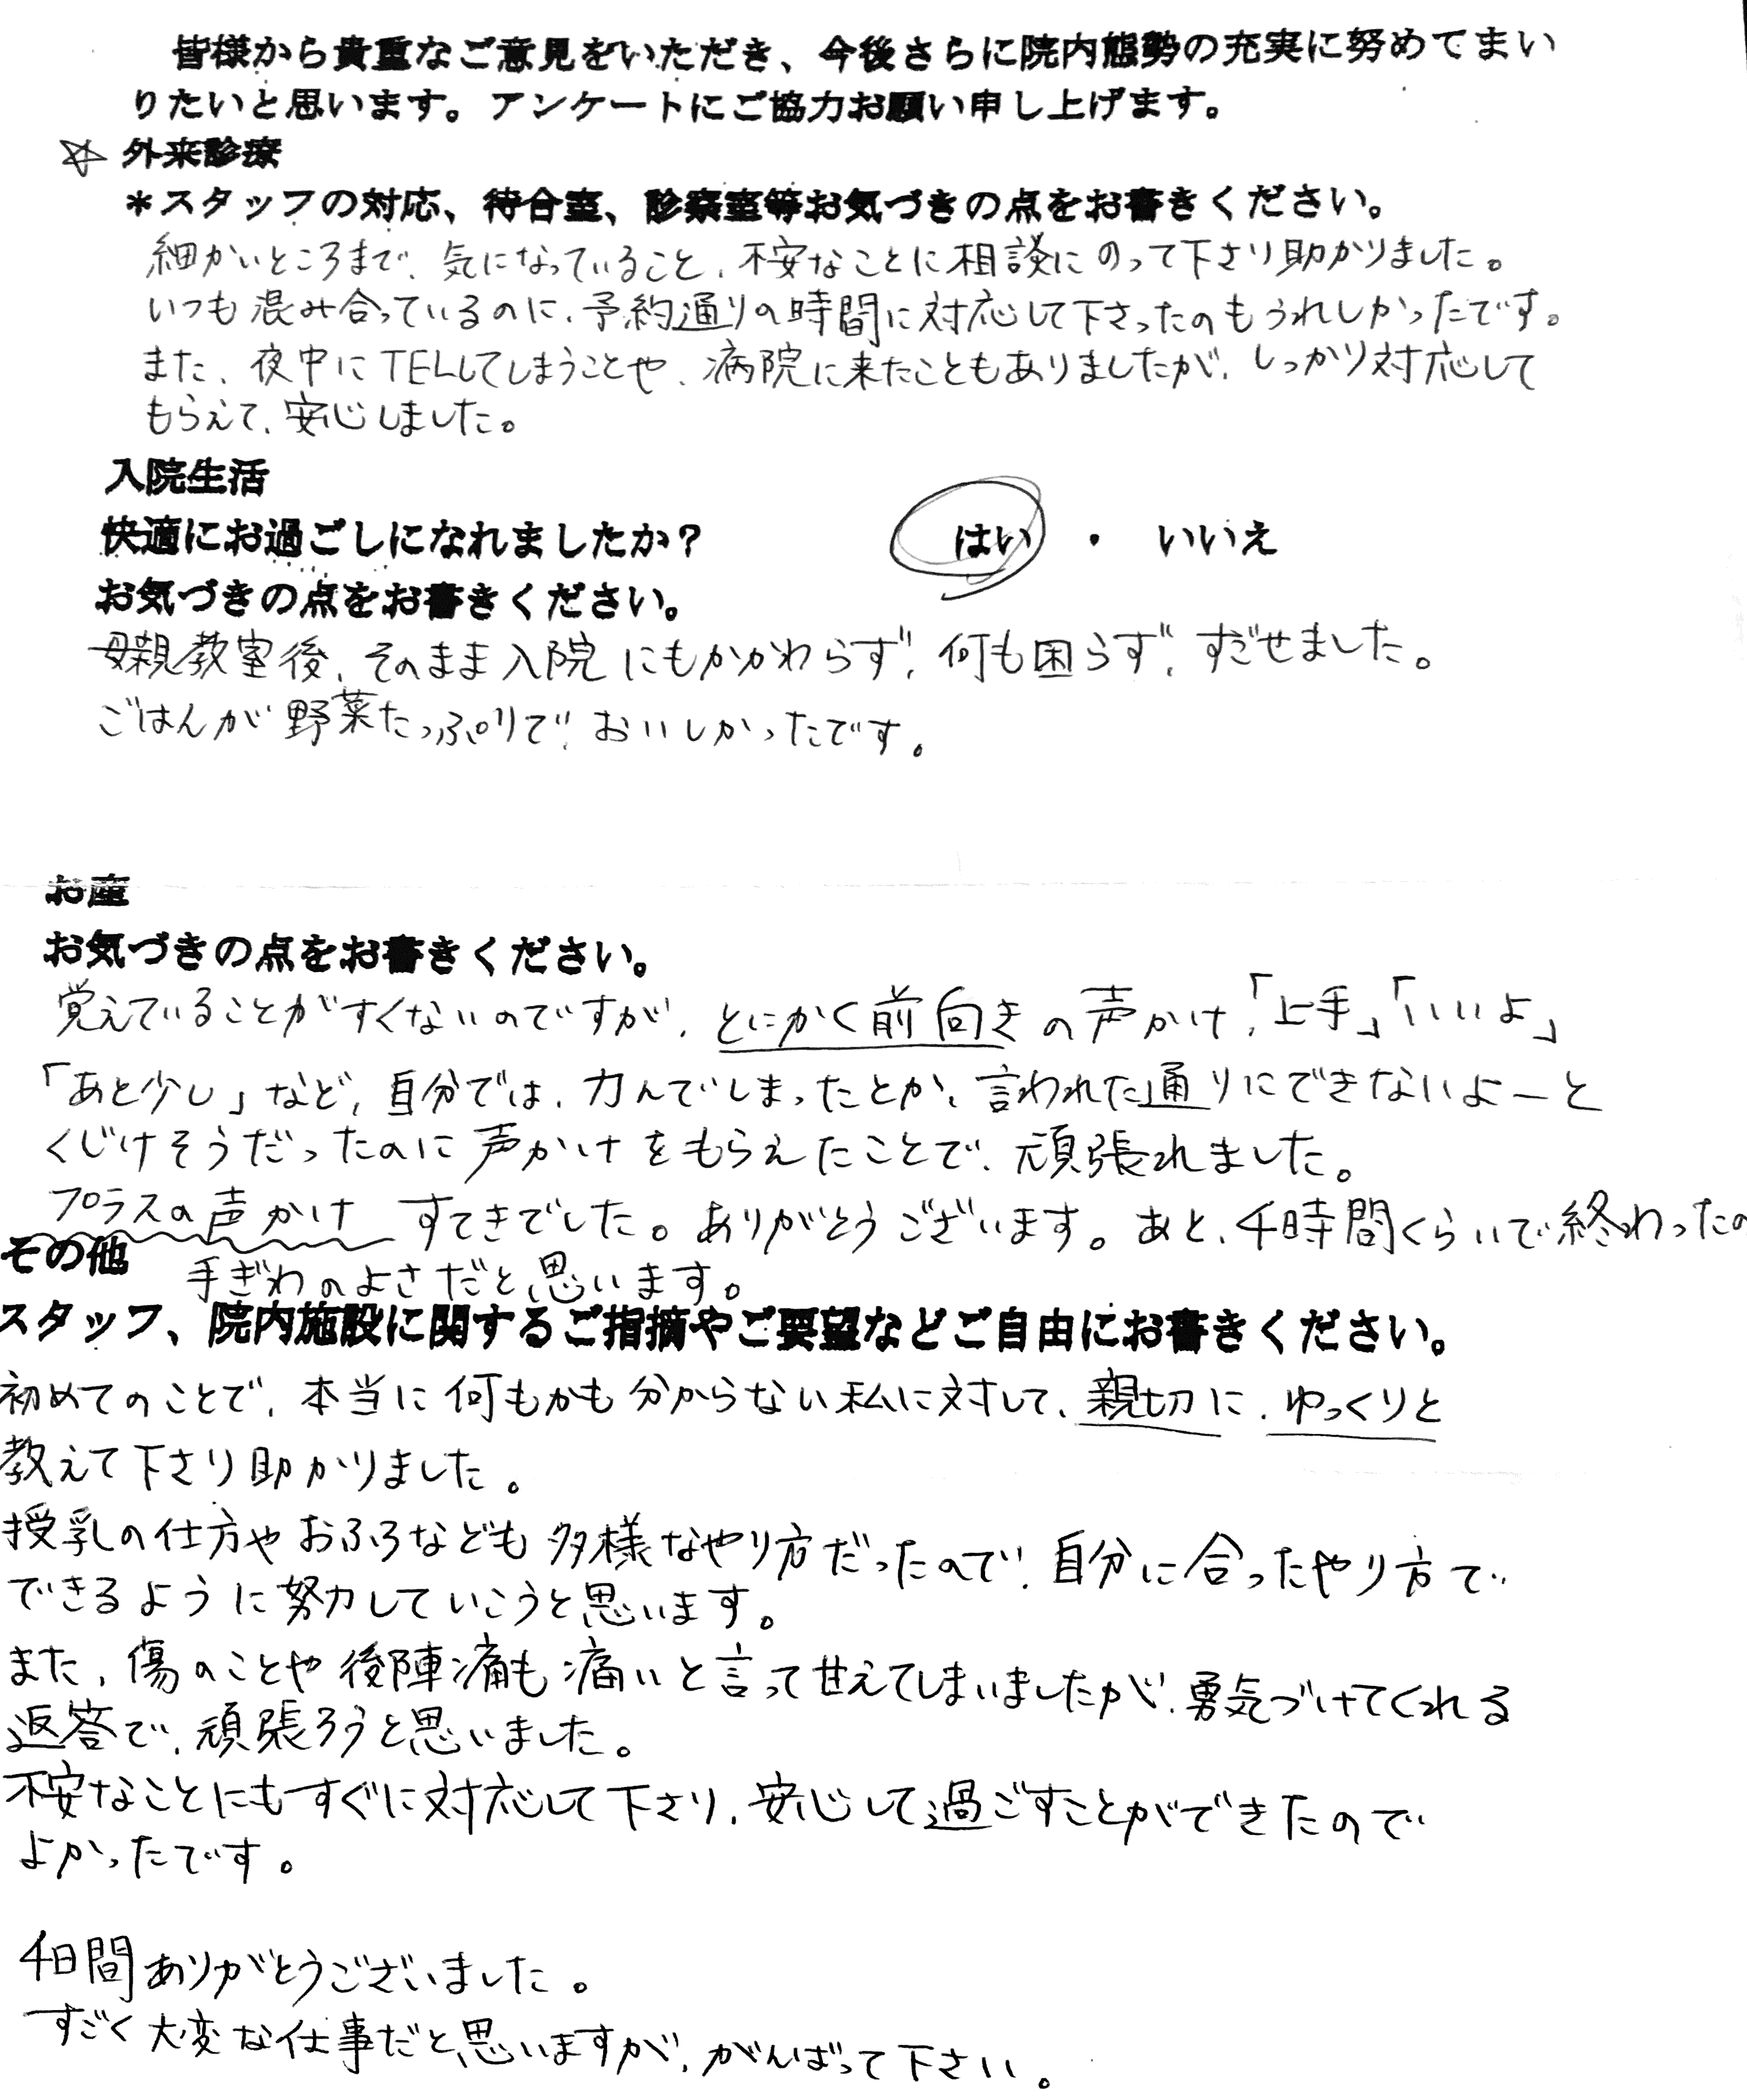 皆様から貴重なご意見をいただき、今後さらに院内態勢の充実に努めてまい
りたいと思います。アンケートにご協力お願い申し上げます。
☆ 外来診療
＊スタッフの対応、待合室、診察室等お気づきの点をお書きください。
細かいところまで、気になっていること、不安なことに相談にのって下さり助かりました。
いつも混み合っているのに、予約通りの時間に対応して下さったのもうれしかったです。
また、夜中にTELしてしまうことや、病院に来たこともありましたが、しっかり対応して
もらえて、安心しました。
入院生活
快適にお過ごしになれましたか？ はい ・ いいえ
お気づきの点をお書きください。
母親教室後、そのまま入院にもかかわらず、何も困らず、すごせました。
ごはんが野菜たっぷりで、おいしかったです。
お産
お気づきの点をお書きください。
覚えていることがすくないのですが、とにかく前向きの声かけ、「上手」「いいよ」
「あと少し」など、自分では、力んでしまったとか、言われた通りにできないよーと
くじけそうだったのに声かけをもらえたことで、頑張れました。
プラスの声かけ すてきでした。ありがとうございます。あと、4時間くらいで終わったの
その他 手ぎわのよさだと思います。
スタッフ、院内施設に関するご指摘やご要望などご自由にお書きください。
初めてのことで、本当に何もかも分からない私に対して、親切に、ゆっくりと
教えて下さり助かりました。
授乳の仕方やおふろなども多様なやり方だったので、自分に合ったやり方で
できるように努力していこうと思います。
また、傷のことや後陣痛も痛いと言って甘えてしまいましたが、勇気づけてくれる
返答で、頑張ろうと思いました。
不安なことにもすぐに対応して下さり、安心して過ごすことができたので
よかったです。
4日間ありがとうございました。
すごく大変な仕事だと思いますが、がんばって下さい。